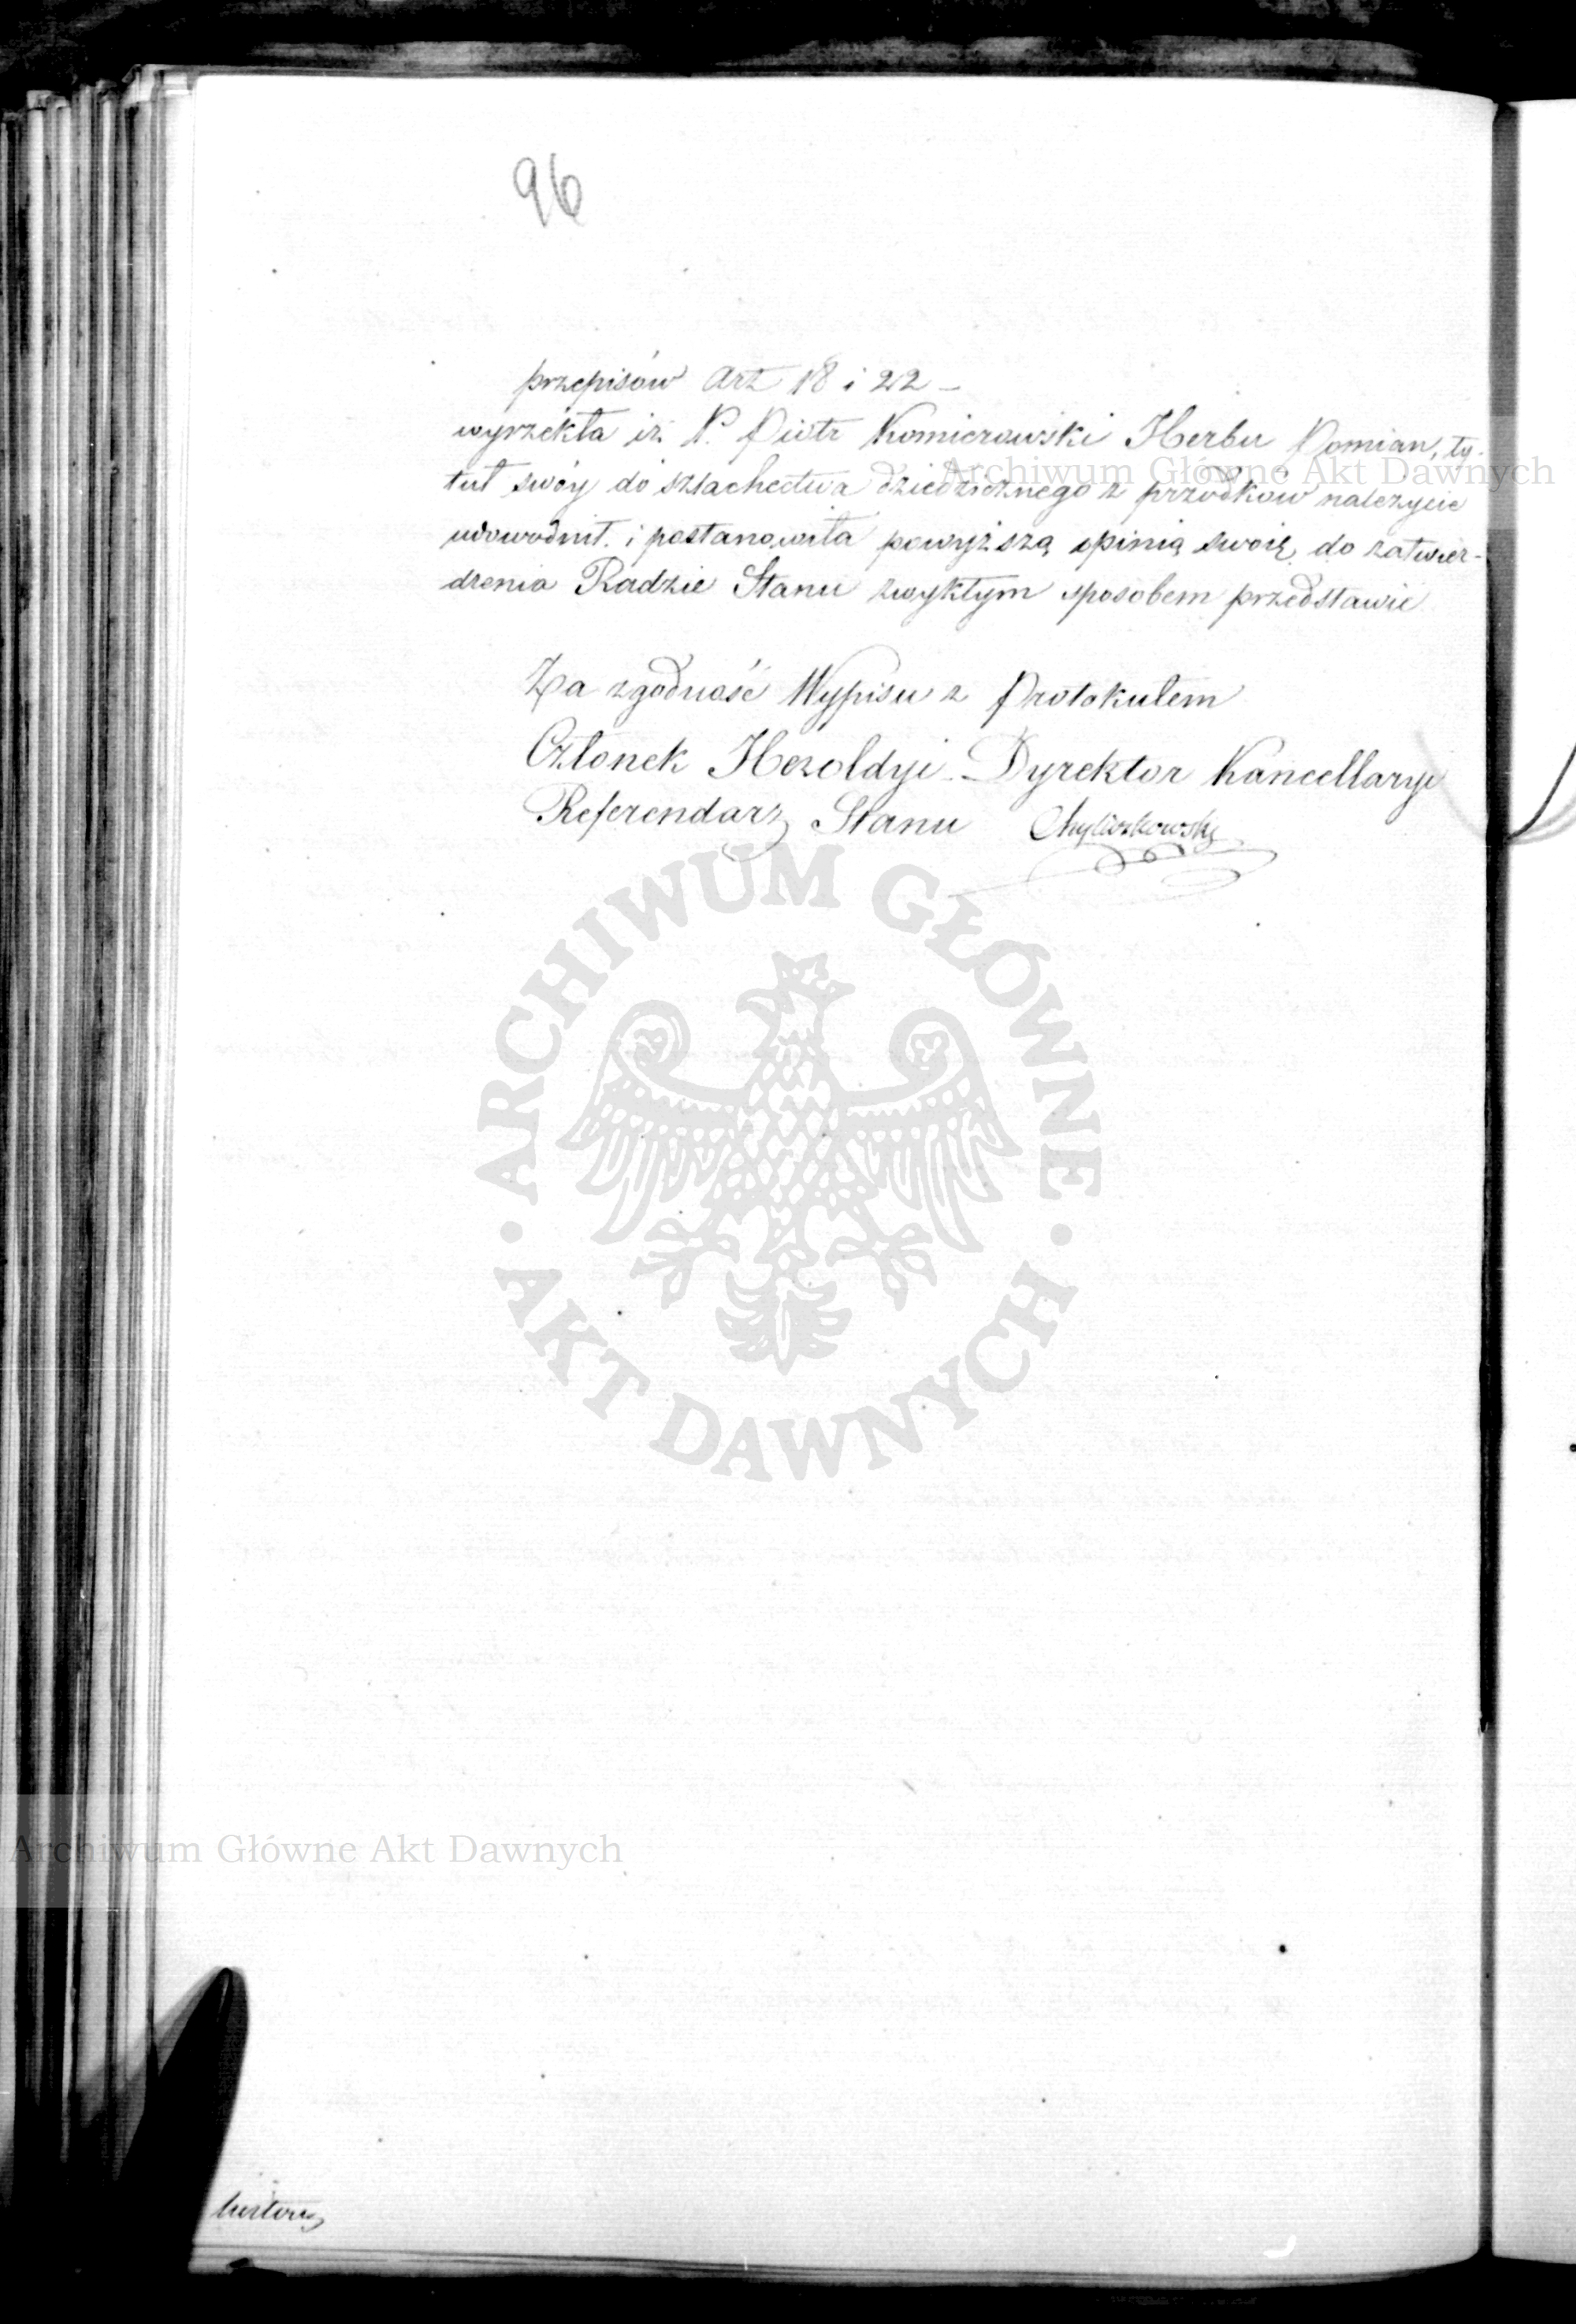 96
przepisów Art 18 i 22 –
wyrzekła iż P. Piotr Komierowski Herbu Pomian, ty-
tuł swóy do szlachectwa dziedzicznego z przodków należycie
udowodnił i postanowiła powyższą opinią swoię do zatwier-
dzenia Radzie Stanu zwykłym sposobem przedstawić
Za zgodność Wypisu z Protokułem
Członek Heroldyi Dyrektor Kancellaryi
Referendarz Stanu Chyliczkowski
Archiwum Główne Akt Dawnych
ARCHIWUM GŁÓWNE
AKT DAWNYCH
Archiwum Główne Akt Dawnych